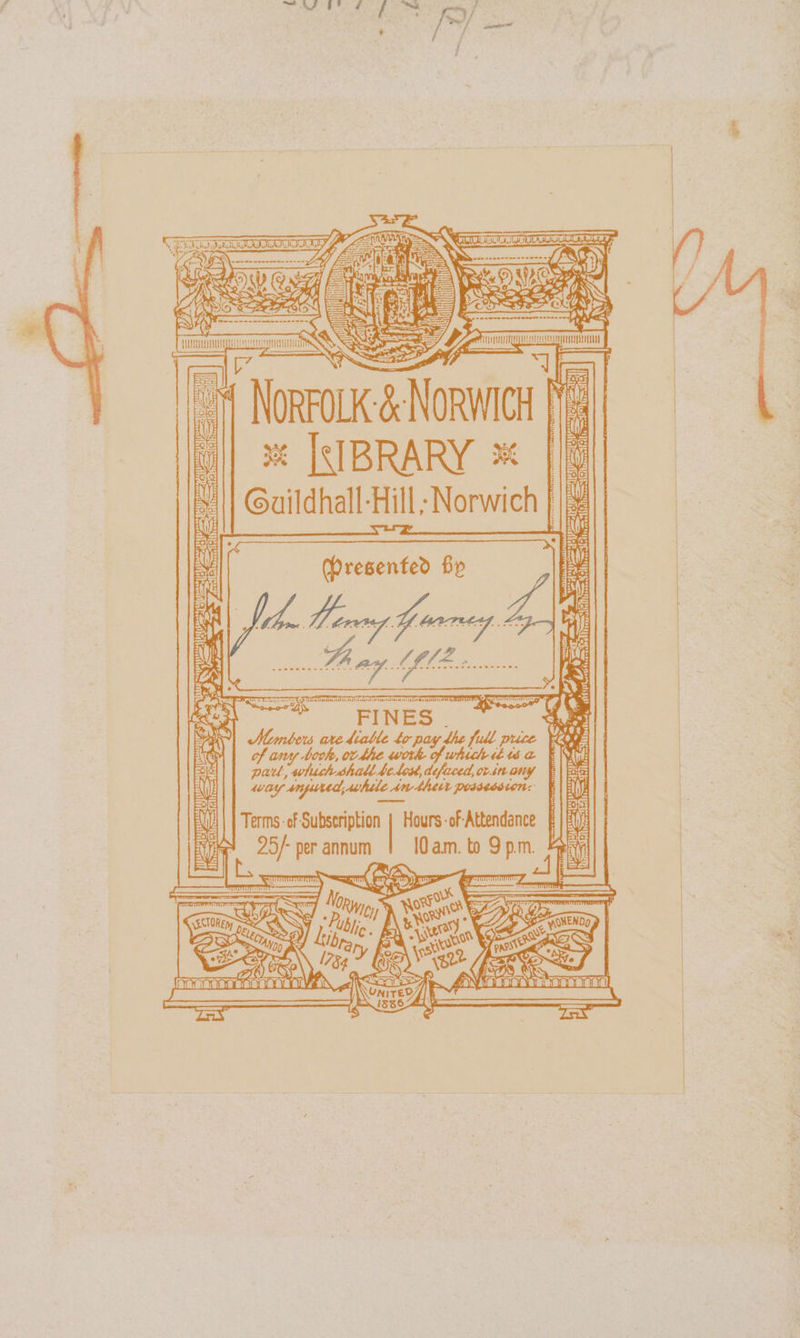 NORFOLK·&·NORWICH
LIBRARY
Guildhall·Hill,·Norwich
Presented by
John Henry Gurney Esq
May 1912.
FINES
Members are liable to pay the full price
of any book, or the work of which it is a
part, which shall be lost, defaced, or in any
way injured, while in their possession.
Terms·of·Subscription
25/- per annum
Hours·of·Attendance
10 a.m. to 9 p.m.
NORWICH
·Public·
Library
1784
NORFOLK
& NORWICH
·Literary·
Institution
1822
LECTOREM DELECTANDO
PARITERQUE MONENDO
UNITED
1886